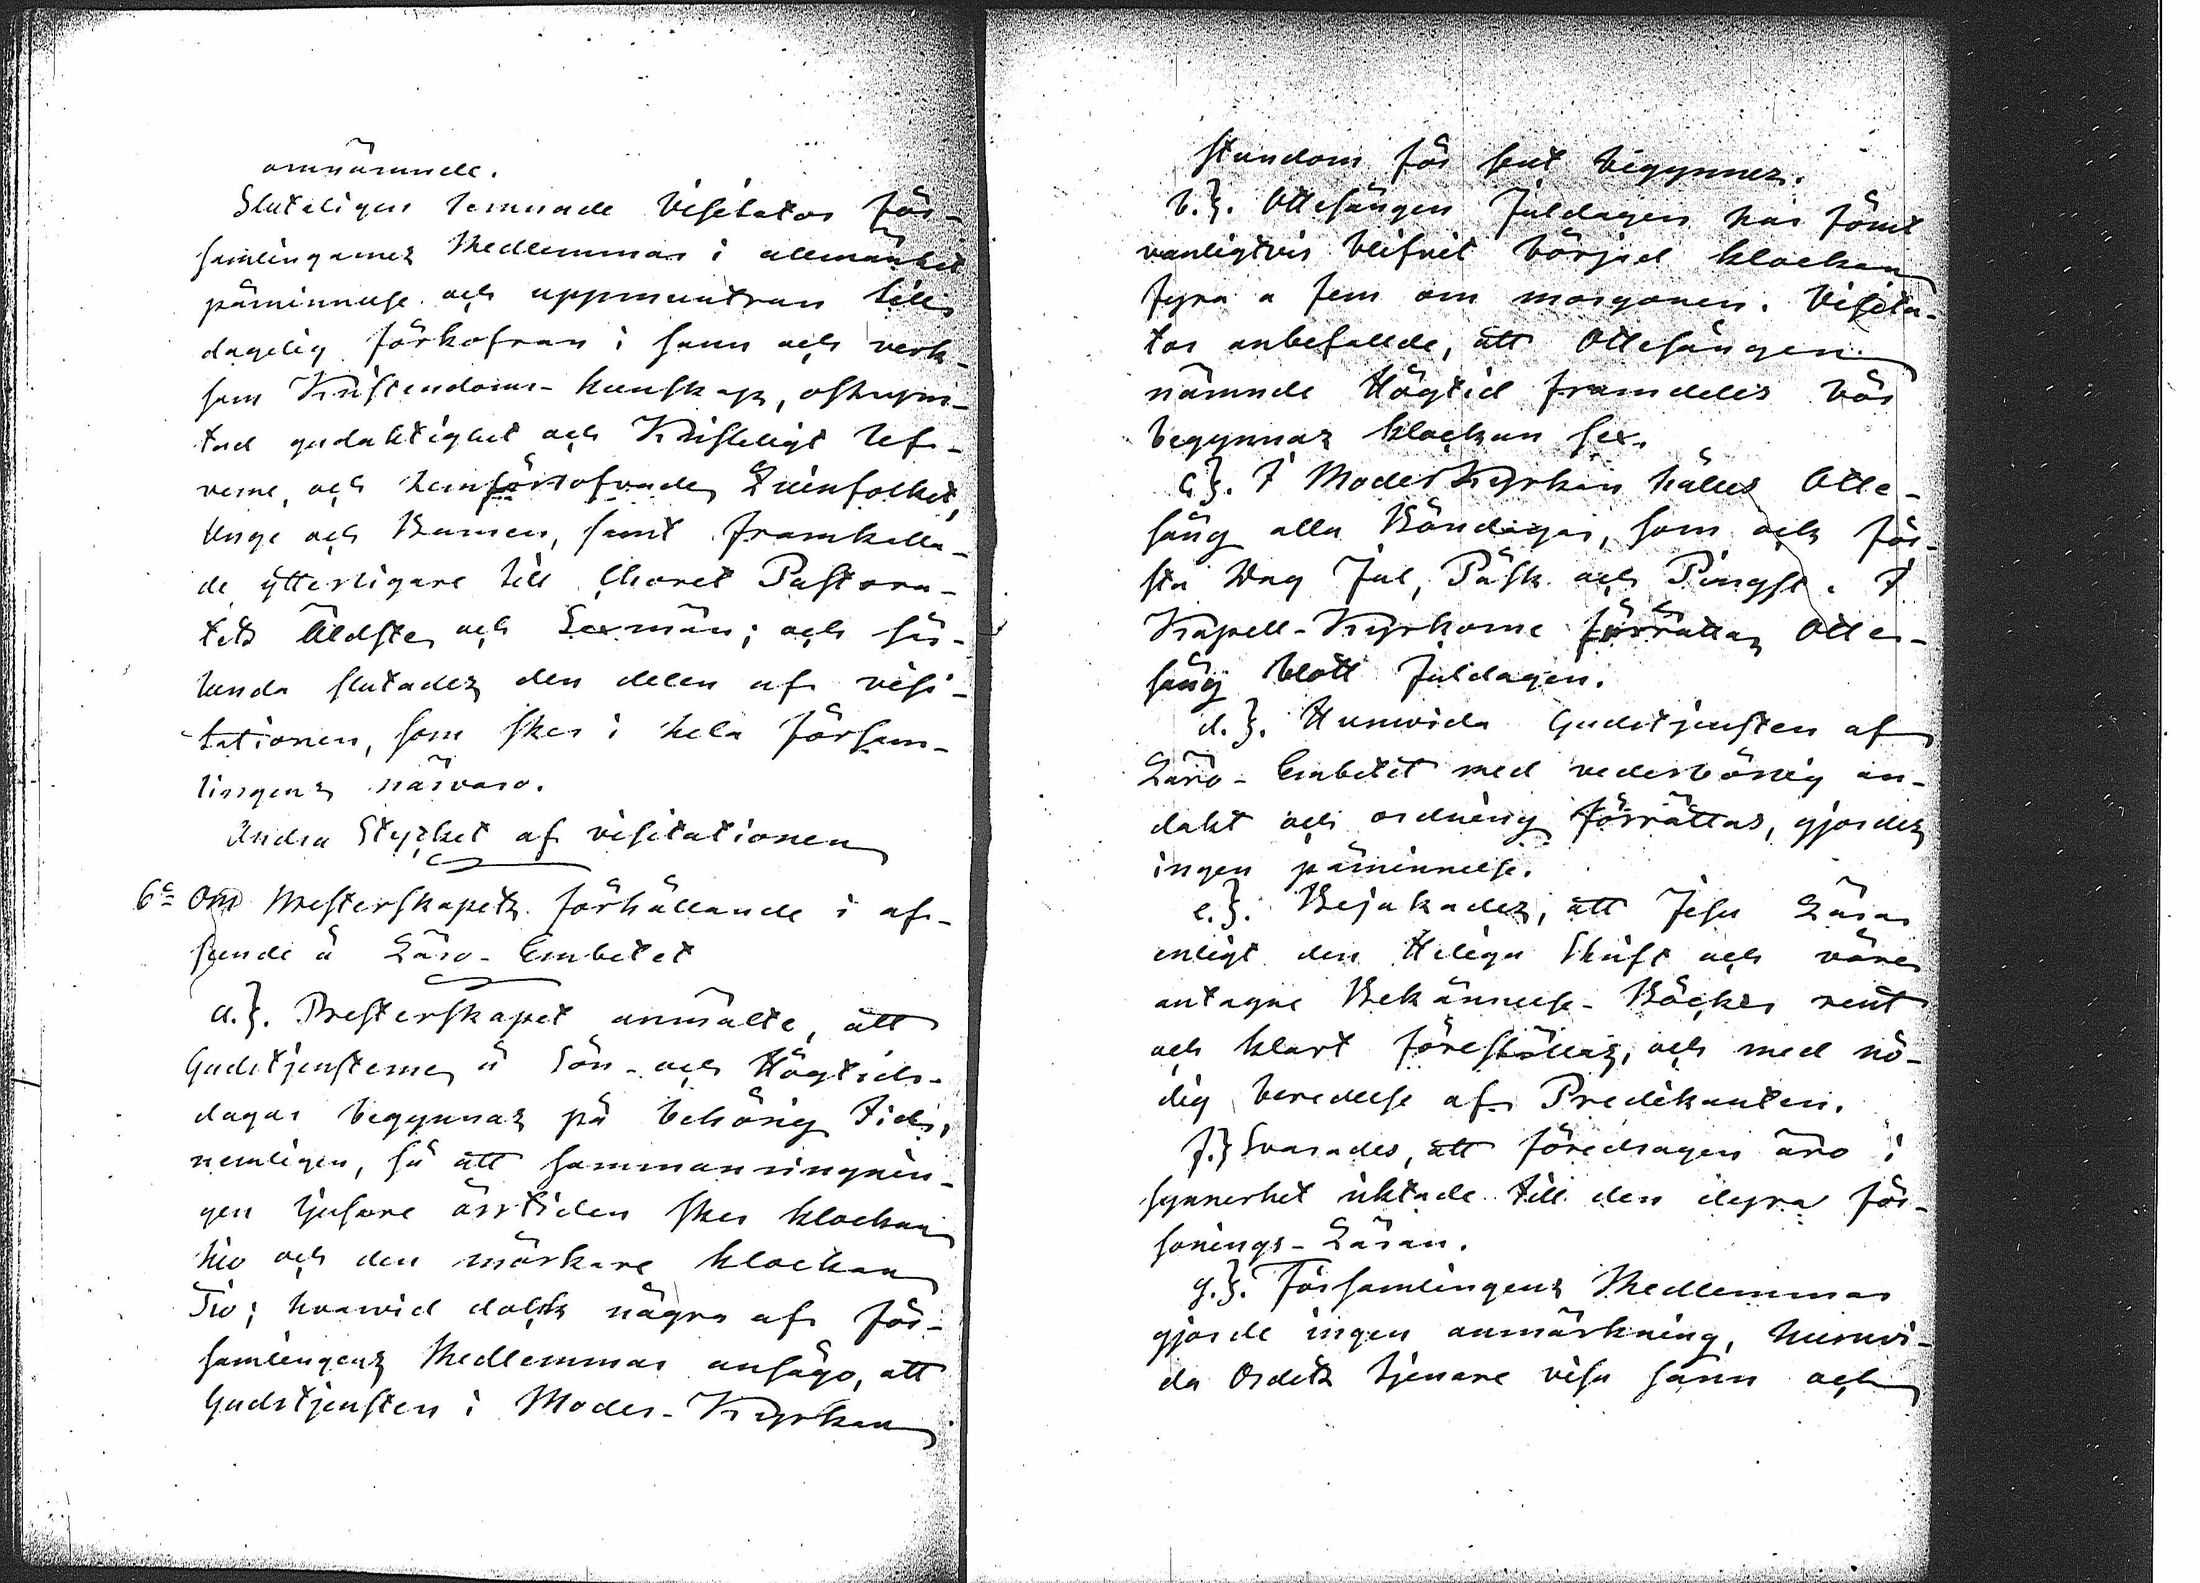 omnämnde.
Sluteligen lemnade Visitator för-
samlingarnes Medlemmar i allmänhet
påminnelse och uppmuntran till
dagelig förkofran i sann och verk-
sam Kristendoms-kunskap, oskrym-
tad gudaktighet och Kristeligt lef-
verne, och hemförlofvade Qvinfolket,
Unge och Barnen, samt framkalla-
de ytterligare till Choret Pastora-
tets Äldste och Sexmän; och så-
lunda slutades den delen af visi-
tationen, som sker i hela försam-
lingens närvaro.
Andra Stycket af visitationen
6<sup>e</sup> Om Presterskapets förhållande i af-
seende å Läro-Embetet
a.}. Presterskapet anmälte, att
Gudstjensterne å Sön- och Högtids-
dagar begynnas på behörig tid,
nemligen, så att sammanringnin-
gen ljusare årstiden sker klockan
Nio och den mörkare klockan
Tio; hvarvid dock några af för-
samlingens Medlemmar ansågo, att
Gudstjensten i Moder-Kyrkan
stundom för sent begynnes.
b.}. Ottesången Juldagen har förut
vanligtvis blifvit börjad klockan
fyra a fem om morgonen. Visita-
tor anbefallde, att Ottesången
nämnde Högtid framdeles bör
begynnas klockan sex.
c.}. I ModerKyrkan hålles Otte-
sång alla Böndagar, som och för-
sta Dag Jul, Påsk och Pingst. I
Kapell-Kyrkorne förrättas Otte-
sång blott Juldagen.
d.}. Huruvida Gudstjensten af
Läro-Embetet med vederbörlig an-
dakt och ordning förrättas, gjordes
ingen påminnelse.
e.}. Bejakades, att Jesu Läras
enligt den Heliga Skrift och våre
antagne Bekännelse-Böcker rent
och klart föreställas, och med nö-
dig beredelse af Predikanten.
f.} Svarades, att föredragen äro i
synnerhet riktade till den dyra för-
sonings-Läran.
g.}. Församlingens Medlemmar
gjorde ingen anmärkning, huruvi-
da Ordets tjenare visa sann och